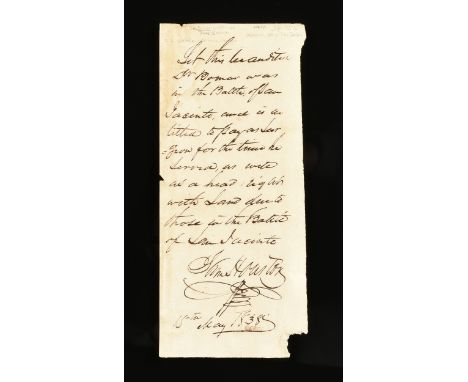 Let this be audited
Dr Bomar was
in the Battle of San
Jacinto, and is en
titled to pay as Sur
-geon for the time he
served, as well
as a head right
with Land due to
those in the Battle
of San Jacinto
Sam Houston
18th May 1838